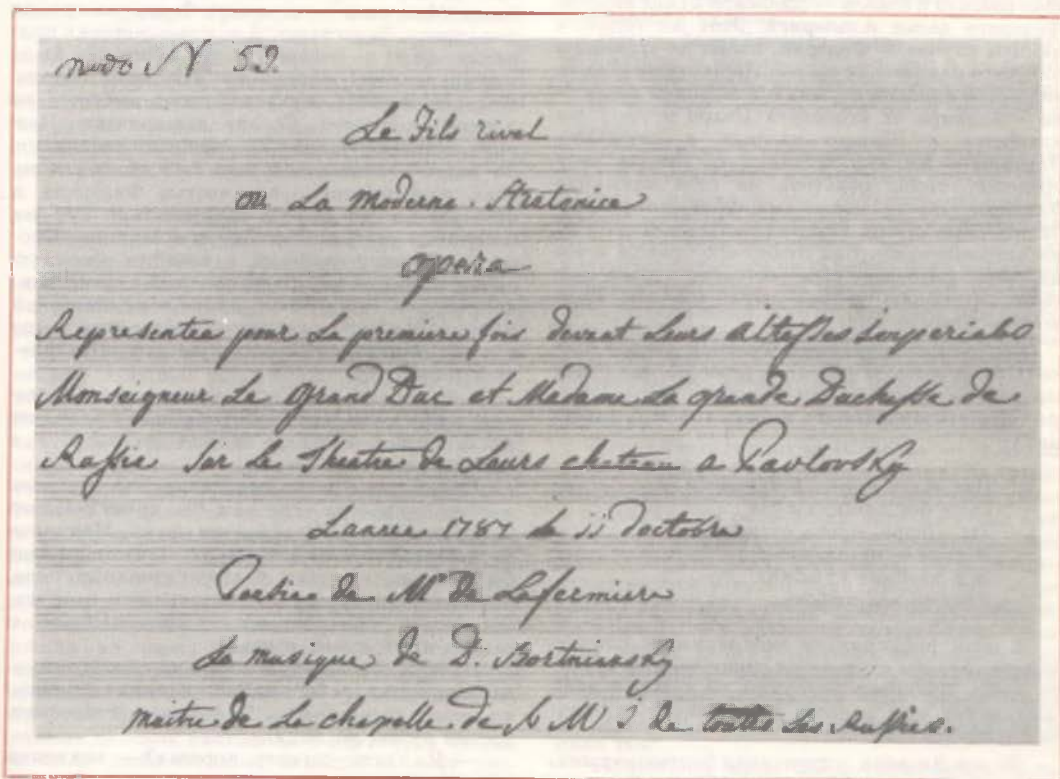 N 59.
Le Fils rival
ou La Moderne Stratonice
opera
Representée pour La premiere fois devant Leurs altesses imperiales
Monseigneur Le grand Duc et Madame La grande Duchesse de
Russie sur Le Theatre de Leurs chateau a Pavlovsky
Lannee 1787 le 11 doctobre
Poesie de Mr de Lafermiere
La musique de D. Bortniansky
maitre de La chapelle de S M I de toutes Les Russies.